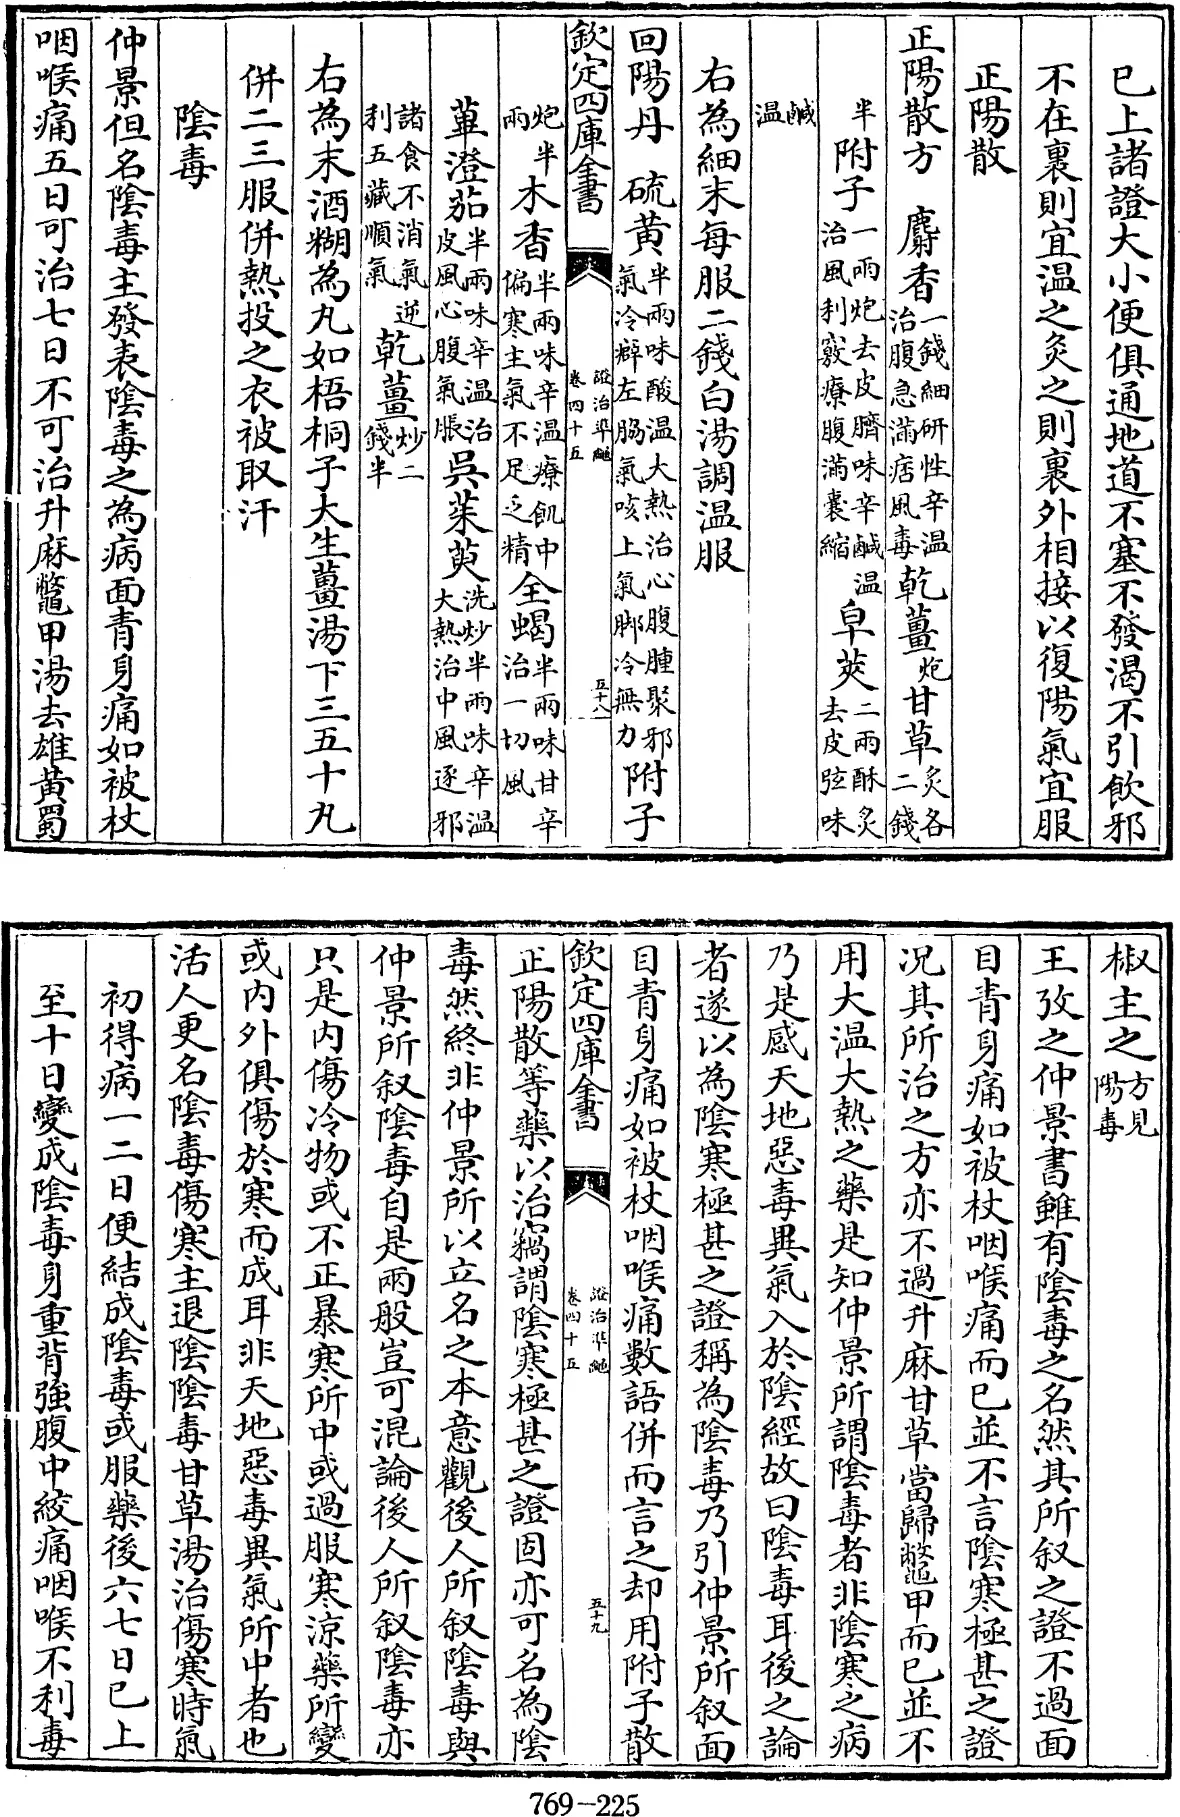 已上諸證大小便俱通地道不塞不發渴不引飲邪
不在裏則宜温之灸之則裏外相接以復陽氣宜服
正陽散
正陽散方　麝香一錢細研性辛温治腹急滿痞風毒乾薑炮甘草炙各二錢
半附子一兩炮去皮臍味辛鹹温治風利竅療腹滿囊縮皁莢二兩酥炙去皮弦味
鹹温
右為細末每服二錢白湯調温服
回陽丹　硫黄半兩味酸温大熱治心腹腫聚邪氣冷癖左脇氣咳上氣脚冷無力附子
欽定四庫全書　證治準繩卷四十五　五十八
炮半兩木香半兩味辛温療飢中偏寒主氣不足乏精全蝎半兩味甘辛治一切風
蓽澄茄半兩味辛温治皮風心腹氣脹吳茱萸洗炒半兩味辛温大熱治中風逐邪
諸食不消氣逆利五藏順氣乾薑炒二錢半
右為末酒糊為丸如梧桐子大生薑湯下三五十丸
併二三服併熱投之衣被取汗
陰毒
仲景但名陰毒主發表陰毒之為病面青身痛如被杖
咽喉痛五日可治七日不可治升麻鼈甲湯去雄黄蜀
椒主之方見陽毒
王㺯之仲景書雖有陰毒之名然其所叙之證不過面
目青身痛如被杖咽喉痛而已並不言陰寒極甚之證
况其所治之方亦不過升麻甘草當歸鼈甲而已並不
用大温大熱之藥是知仲景所謂陰毒者非陰寒之病
乃是感天地惡毒異氣入於陰經故曰陰毒耳後之論
者遂以為陰寒極甚之證稱為陰毒乃引仲景所叙面
目青身痛如被杖咽喉痛數語併而言之却用附子散
欽定四庫全書　證治準繩卷四十五　五十九
正陽散等藥以治竊謂陰寒極甚之證固亦可名為陰
毒然終非仲景所以立名之本意觀後人所叙陰毒與
仲景所叙陰毒自是兩般豈可混論後人所叙陰毒亦
只是内傷冷物或不正暴寒所中或過服寒涼藥所變
或内外俱傷於寒而成耳非天地惡毒異氣所中者也
活人更名陰毒傷寒主退陰陰毒甘草湯治傷寒時氣
初得病一二日便結成陰毒或服藥後六七日已上
至十日變成陰毒身重背強腹中絞痛咽喉不利毒
769-225